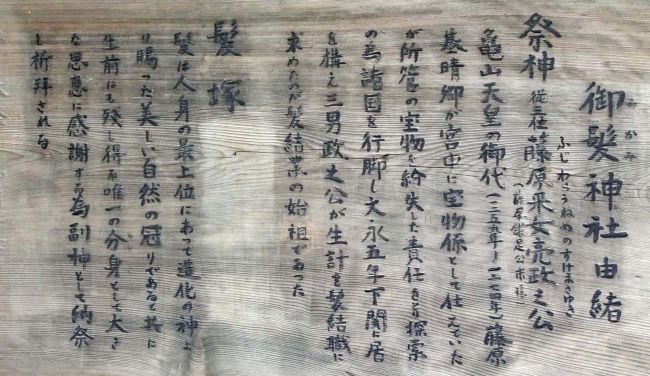 みかみ
御髪神社由緒
ふじわらうねめのすけまさゆき
祭神 従三位藤原采女亮政之公
亀山天皇の御代(一二五九年〜一二七四年)藤原
基晴卿が宮中に宝物係として仕えていた
が所管の宝物を紛失した責任をとり探索
の為諸国を行脚し文永五年下関に居
を構え三男政之公が生計を髪結職に
求めたのが髪結業の始祖であった
髪塚
髪は人身の最上位にあって造化の神よ
り賜った美しい自然の冠りであると共に
生前にも残し得る唯一の分身として大き
な恩恵に感謝する為副神として納祭
し祈拝される